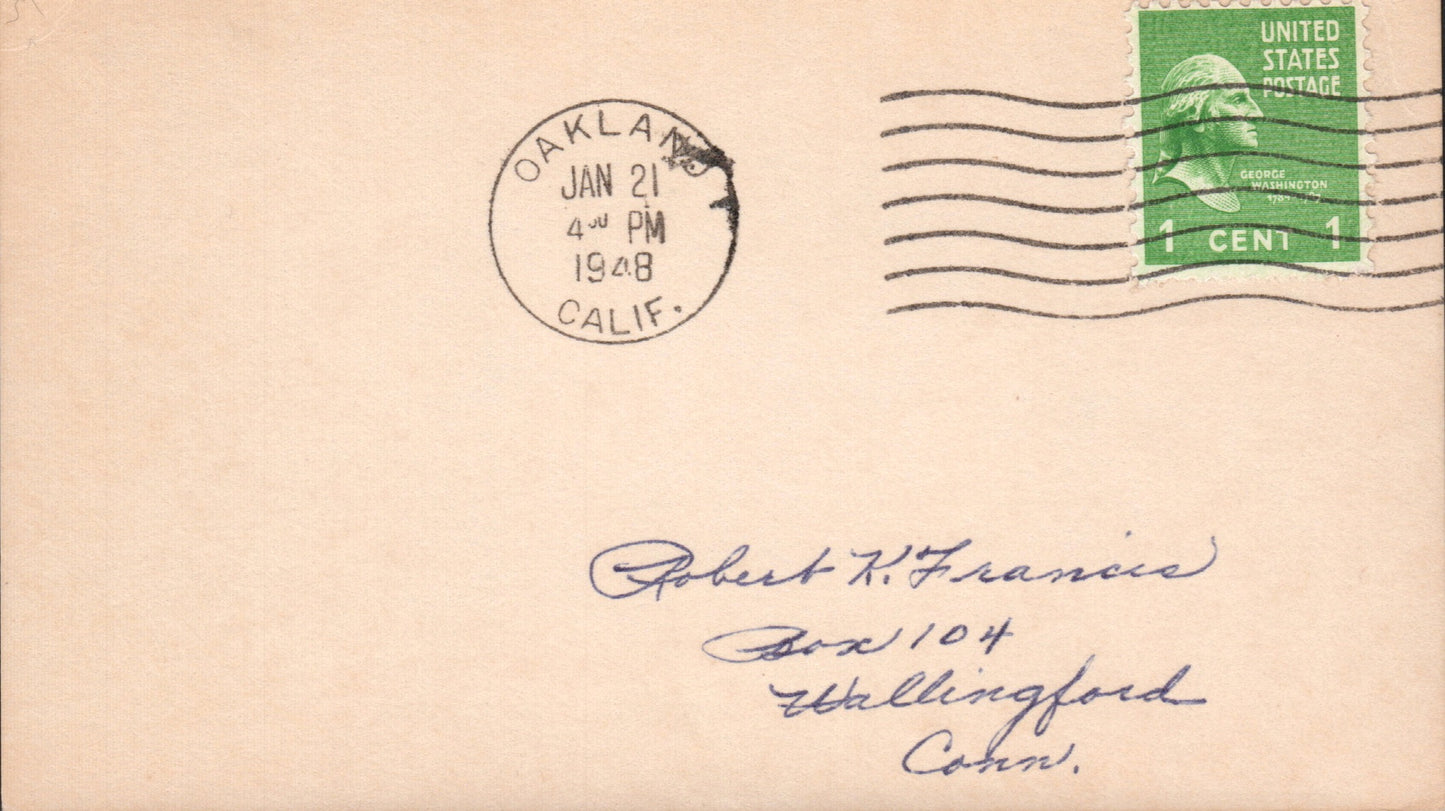 UNITED
STATES
POSTAGE
GEORGE
WASHINGTON
1 CENT 1
OAKLAND
JAN 21
4 PM
1948
CALIF.
Robert K. Francis
Box 104
Wallingford
Conn.